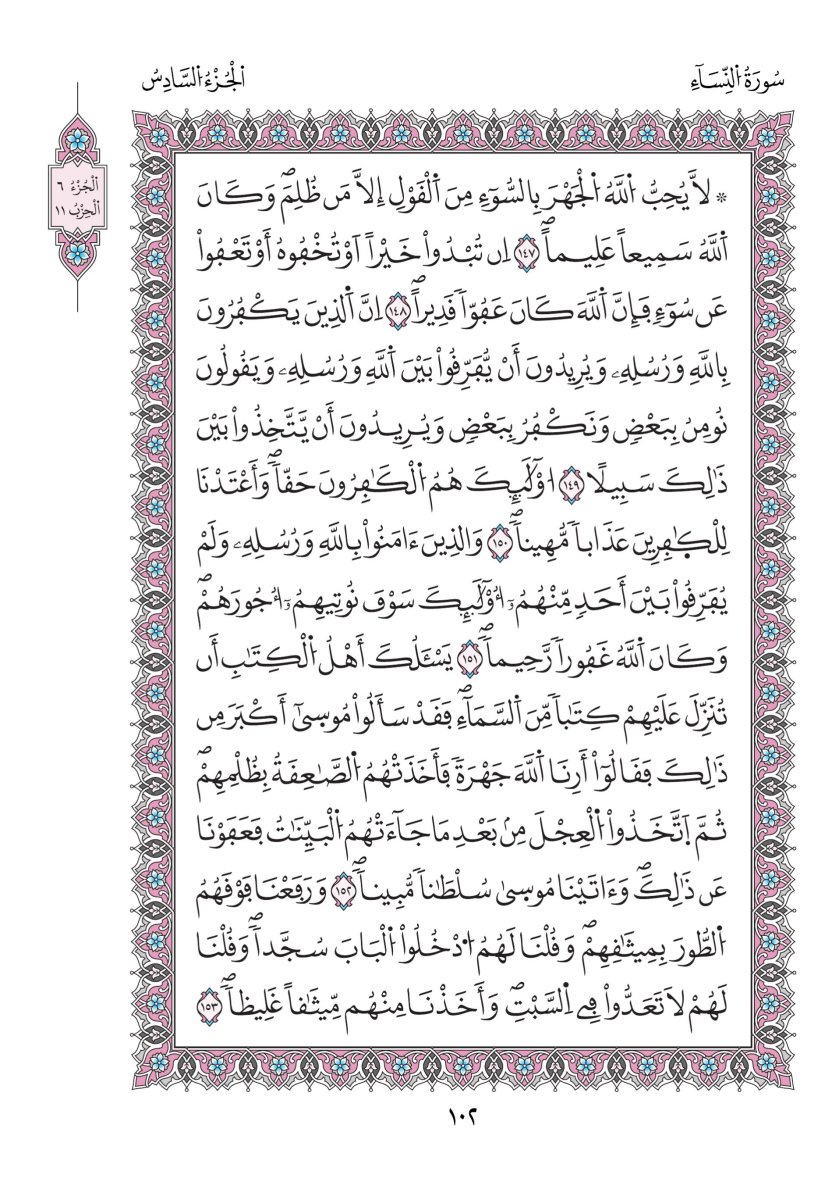 سُورَةُ اُ۬لنِّسَآءِ
اَ۬لْجُزْءُ اُ۬لسَّادِسُ
اَ۬لْجُزْءُ ٦
اَ۬لْحِزْبُ ١١
۞ لَّا يُحِبُّ اُ۬للَّهُ اُ۬لْجَهْرَ بِالسُّوٓءِ مِنَ اَ۬لْقَوْلِ إِلَّا مَن ظُلِمَۖ وَكَانَ
اَ۬للَّهُ سَمِيعاً عَلِيماًۖ ١٤٧ اِن تُبْدُواْ خَيْراً اَوْ تُخْفُوهُ أَوْ تَعْفُواْ
عَن سُوٓءٖ فَإِنَّ اَ۬للَّهَ كَانَ عَفُوّاٗ قَدِيراًۖ ١٤٨ اِنَّ اَ۬لذِينَ يَكْفُرُونَ
بِاللَّهِ وَرُسُلِهِۦ وَيُرِيدُونَ أَنْ يُّفَرِّقُواْ بَيْنَ اَ۬للَّهِ وَرُسُلِهِۦ وَيَقُولُونَ
نُومِنُ بِبَعْضٖ وَنَكْفُرُ بِبَعْضٖ وَيُرِيدُونَ أَنْ يَّتَّخِذُواْ بَيْنَ
ذَٰلِكَ سَبِيلًا ١٤٩ ا۟وْلَٰٓئِكَ هُمُ اُ۬لْكَٰفِرُونَ حَقّاٗۖ وَأَعْتَدْنَا
لِلْكٰ۪فِرِينَ عَذَاباٗ مُّهِيناٗۖ ١٥٠ وَالذِينَ ءَامَنُواْ بِاللَّهِ وَرُسُلِهِۦ وَلَمْ
يُفَرِّقُواْ بَيْنَ أَحَدٖ مِّنْهُمُۥٓ أُوْلَٰٓئِكَ سَوْفَ نُوتِيهِمُۥٓ أُجُورَهُمْۖ
وَكَانَ اَ۬للَّهُ غَفُوراٗ رَّحِيماٗۖ ١٥١ يَسْـَٔلُكَ أَهْلُ اُ۬لْكِتَٰبِ أَن
تُنَزِّلَ عَلَيْهِمْ كِتَٰباٗ مِّنَ اَ۬لسَّمَآءِۖ فَقَدْ سَأَلُواْ مُوس۪ىٰٓ أَكْبَرَ مِن
ذَٰلِكَ فَقَالُوٓاْ أَرِنَا اَ۬للَّهَ جَهْرَةٗ فَأَخَذَتْهُمُ اُ۬لصَّٰعِقَةُ بِظُلْمِهِمْۖ
ثُمَّ اَ۪تَّخَذُواْ اُ۬لْعِجْلَ مِنۢ بَعْدِ مَا جَآءَتْهُمُ اُ۬لْبَيِّنَٰتُ فَعَفَوْنَا
عَن ذَٰلِكَۖ وَءَاتَيْنَا مُوس۪ىٰ سُلْطَٰناٗ مُّبِيناٗۖ ١٥٢ وَرَفَعْنَا فَوْقَهُمُ
اُ۬لطُّورَ بِمِيثَٰقِهِمْۖ وَقُلْنَا لَهُمُ اُ۟دْخُلُواْ اُ۬لْبَابَ سُجَّداٗۖ وَقُلْنَا
لَهُمْ لَا تَعَدُّواْ فِے اِ۬لسَّبْتِۖ وَأَخَذْنَا مِنْهُم مِّيثَٰقاً غَلِيظاٗۖ ١٥٣
١٠٢